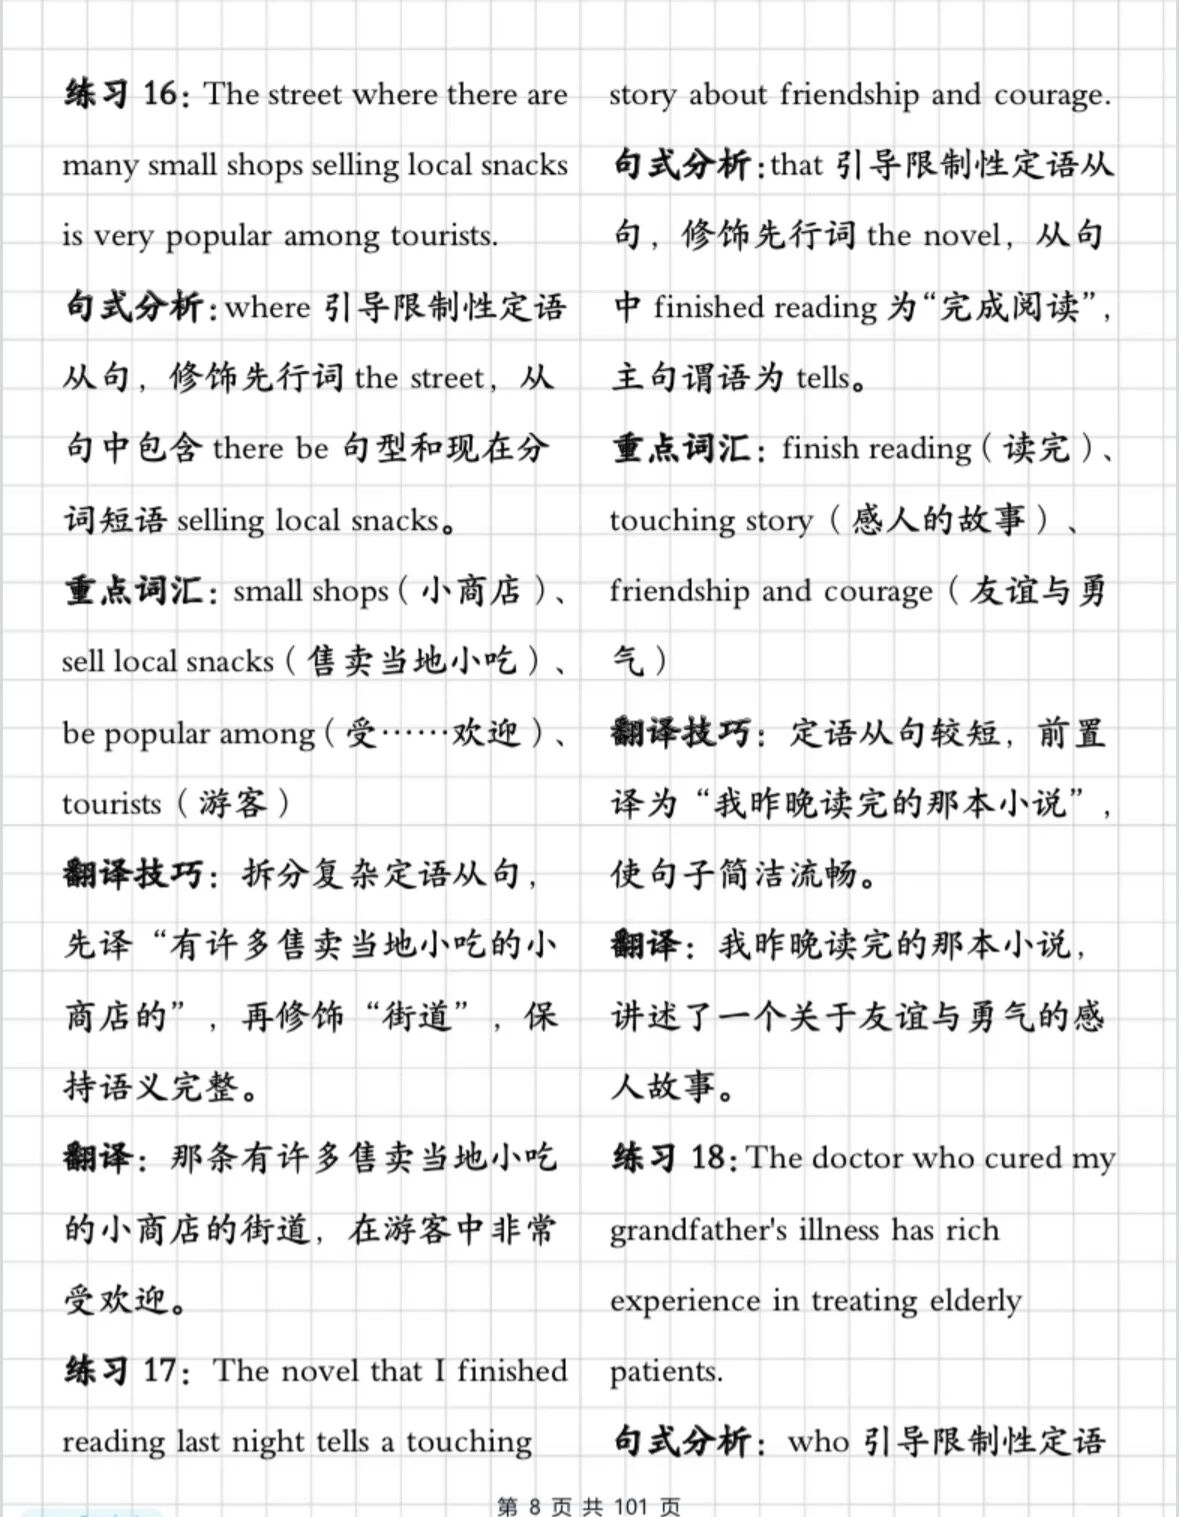 练习 16：The street where there are
many small shops selling local snacks
is very popular among tourists.
句式分析：where 引导限制性定语
从句，修饰先行词 the street，从
句中包含 there be 句型和现在分
词短语 selling local snacks。
重点词汇：small shops（小商店）、
sell local snacks（售卖当地小吃）、
be popular among（受……欢迎）、
tourists（游客）
翻译技巧：拆分复杂定语从句，
先译“有许多售卖当地小吃的小
商店的”，再修饰“街道”，保
持语义完整。
翻译：那条有许多售卖当地小吃
的小商店的街道，在游客中非常
受欢迎。
练习 17：The novel that I finished
reading last night tells a touching
story about friendship and courage.
句式分析：that 引导限制性定语从
句，修饰先行词 the novel，从句
中 finished reading 为“完成阅读”，
主句谓语为 tells。
重点词汇：finish reading（读完）、
touching story（感人的故事）、
friendship and courage（友谊与勇
气）
翻译技巧：定语从句较短，前置
译为“我昨晚读完的那本小说”，
使句子简洁流畅。
翻译：我昨晚读完的那本小说，
讲述了一个关于友谊与勇气的感
人故事。
练习 18：The doctor who cured my
grandfather's illness has rich
experience in treating elderly
patients.
句式分析：who 引导限制性定语
第 8 页 共 101 页